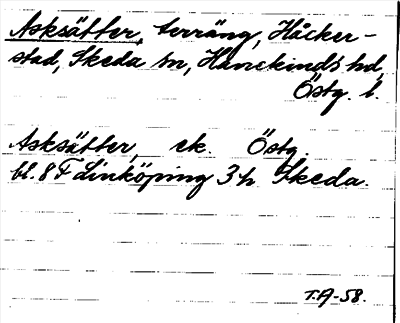 Asksätter, terräng, Häcker-
stad, Skeda sn, Hanekinds hd,
Östg. l.
Asksätter, ek. Östg.
bl. 8 F Linköping 3 h Skeda.
T.A-58.